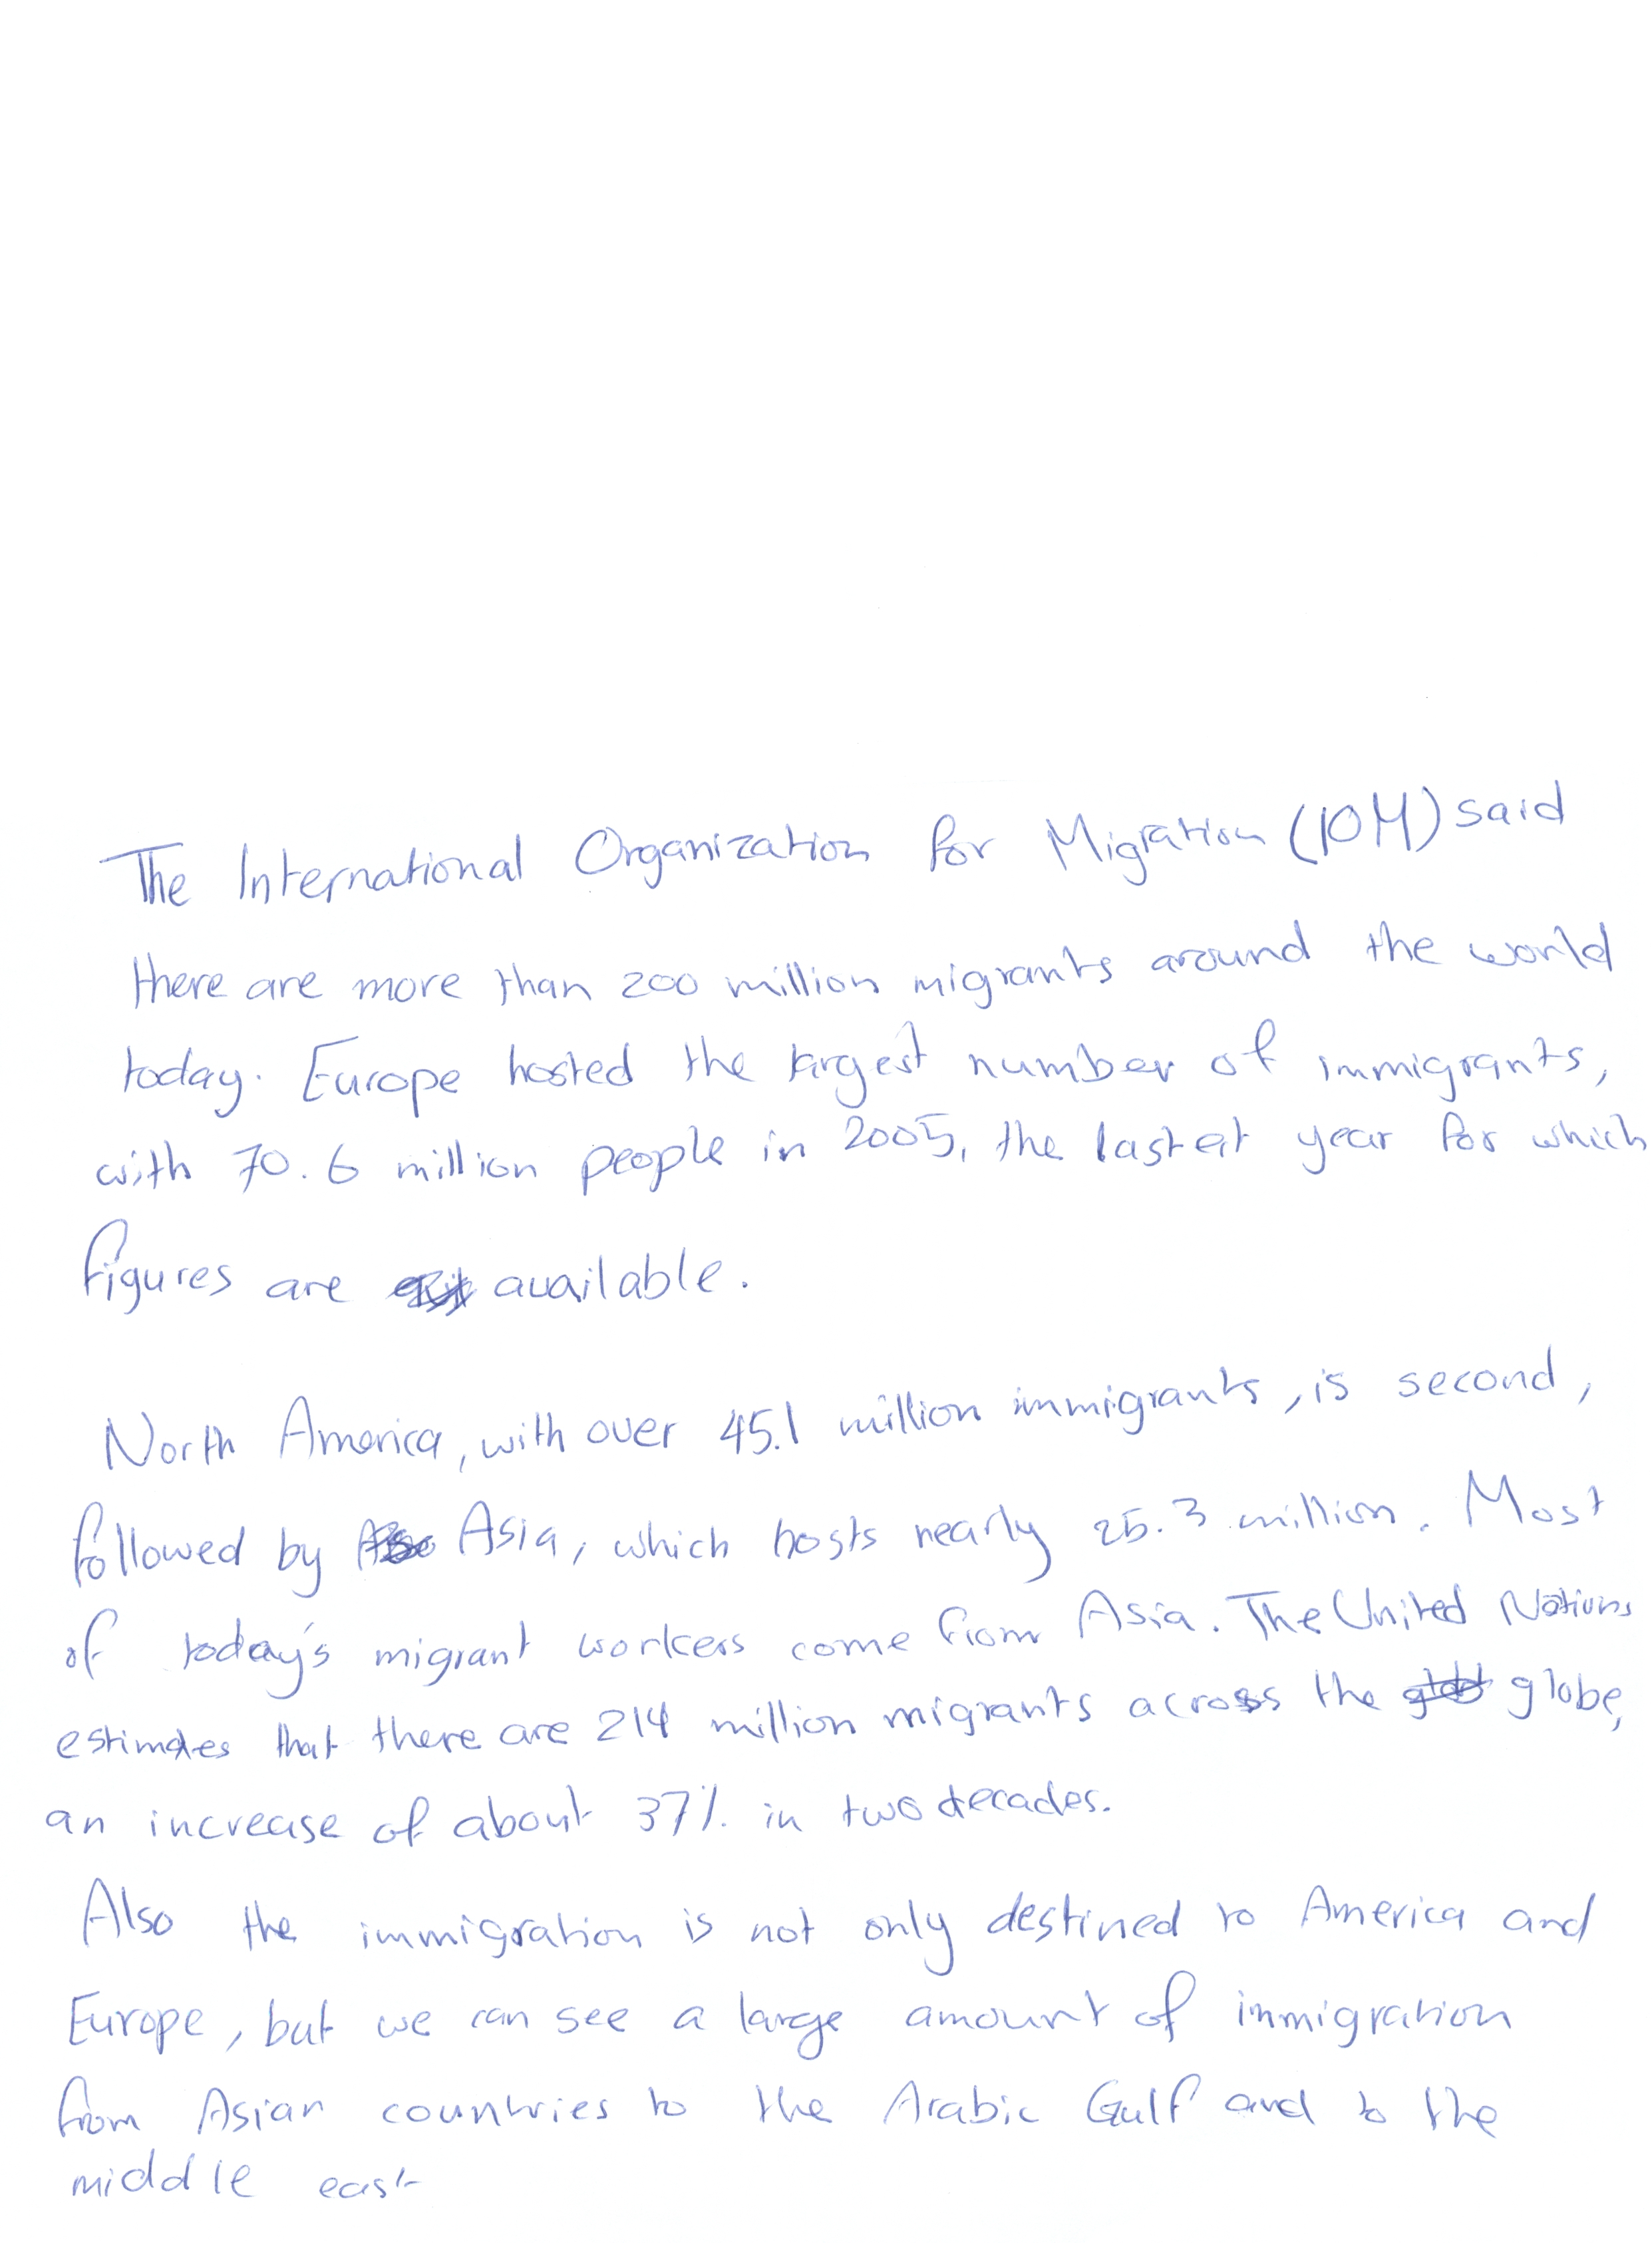 The International Organization for Migration (IOM) said
there are more than 200 million migrants around the world
today. Europe hosted the largest number of immigrants,
with 70.6 million people in 2005, the lastest year for which
figures are available.
North America, with over 45.1 million immigrants, is second,
followed by Asia, which hosts nearly 25.3 million. Most
of today's migrant workers come from Asia. The United Nations
estimates that there are 214 million migrants across the globe,
an increase of about 37% in two decades.
Also the immigration is not only destined to America and
Europe, but we can see a large amount of immigration
from Asian countries to the Arabic Gulf and to the
middle east